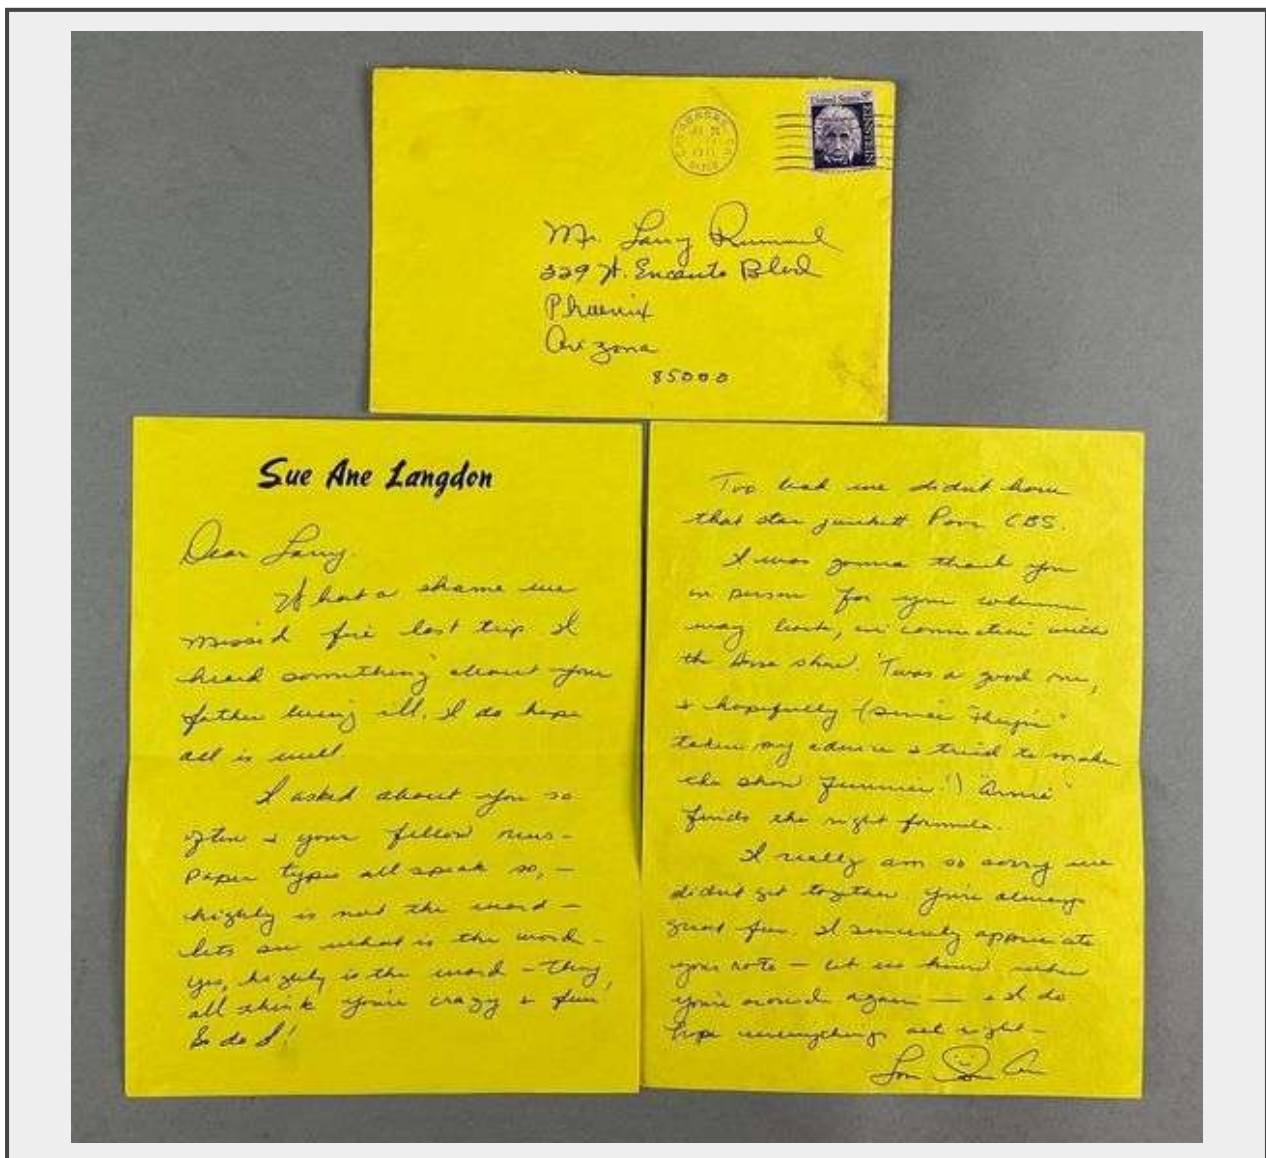 United States 8c
EINSTEIN
1971
Mr. Larry Rummel
329 W. Encanto Blvd
Phoenix
Arizona
85000
Sue Ane Langdon
Dear Larry.
What a shame we
missed this last trip. I
heard something about your
father being ill. I do hope
all is well.
I asked about you so
often & your fellow news-
paper types all speak so, —
highly is not the word —
lets see what is the word —
yes, highly is the word — they
all think you're crazy & fun.
So do I!
Too bad we didn't have
that star junkett Poor CBS.
I was gonna thank you
in person for your
way back, in connection with
the show. 'Twas a good one,
& hopefully (since they've
taken my advice & tried to make
the show funnier!) "Arnie"
finds the right formula.
I really am so sorry we
didn't get together. You're always
great fun. I sincerely appreciate
your note — let us know when
you're around again — & I do
hope everythings all right —
Love Sue Ane